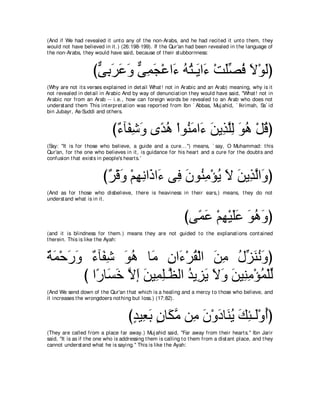 (And if We had revealed it unto any of the non-Arabs, and he had recited it unto them, they
would not have believed in it.) (26:198-199). If the Qur'an had been revealed in the language of
the non-Arabs, they would have said, because of their stubbornness:
(لَوْلاَ فُصِّلَتْ ءَايَـتُهُ ءَاعْجَمِىٌّ وَعَرَبِىٌّ)
(Why are not its verses explained in detail What! not in Arabic and an Arab) meaning, why is it
not revealed in detail in Arabic And by way of denunciation they would have said, "What! not in
Arabic nor from an Arab -- i.e., how can foreign words be revealed to an Arab who does not
understand them This interpretation was reported from Ibn `Abbas, Mujahid, `Ikrimah, Sa`id
bin Jubayr, As-Suddi and others.
(قُلْ هُوَ لِلَّذِينَ ءَامَنُواْ هُدًى وَشِفَآءٌ)
(Say: "It is for those who believe, a guide and a cure...") means, `say, O Muhammad: this
Qur'an, for the one who believes in it, is guidance for his heart and a cure for the doubts and
confusion that exists in people's hearts.'
(وَالَّذِينَ لاَ يُؤْمِنُونَ فِى ءَاذَانِهِمْ وَقْرٌ)
(And as for those who disbelieve, there is heaviness in their ears,) means, they do not
understand what is in it.
(وَهُوَ عَلَيْهِمْ عَمًى)
(and it is blindness for them.) means they are not guided to the explanations contained
therein. This is like the Ayah:
(وَنُنَزِّلُ مِنَ الْقُرْءَانِ مَا هُوَ شِفَآءٌ وَرَحْمَةٌ
لِّلْمُؤْمِنِينَ وَلاَ يَزِيدُ الظَّـلِمِينَ إِلاَّ خَسَارًا )
(And We send down of the Qur'an that which is a healing and a mercy to those who believe, and
it increases the wrongdoers nothing but loss.) (17:82).
(أُوْلَـئِكَ يُنَادَوْنَ مِن مَّكَانٍ بَعِيدٍ)
(They are called from a place far away.) Mujahid said, "Far away from their hearts." Ibn Jarir
said, "It is as if the one who is addressing them is calling to them from a distant place, and they
cannot understand what he is saying." This is like the Ayah: